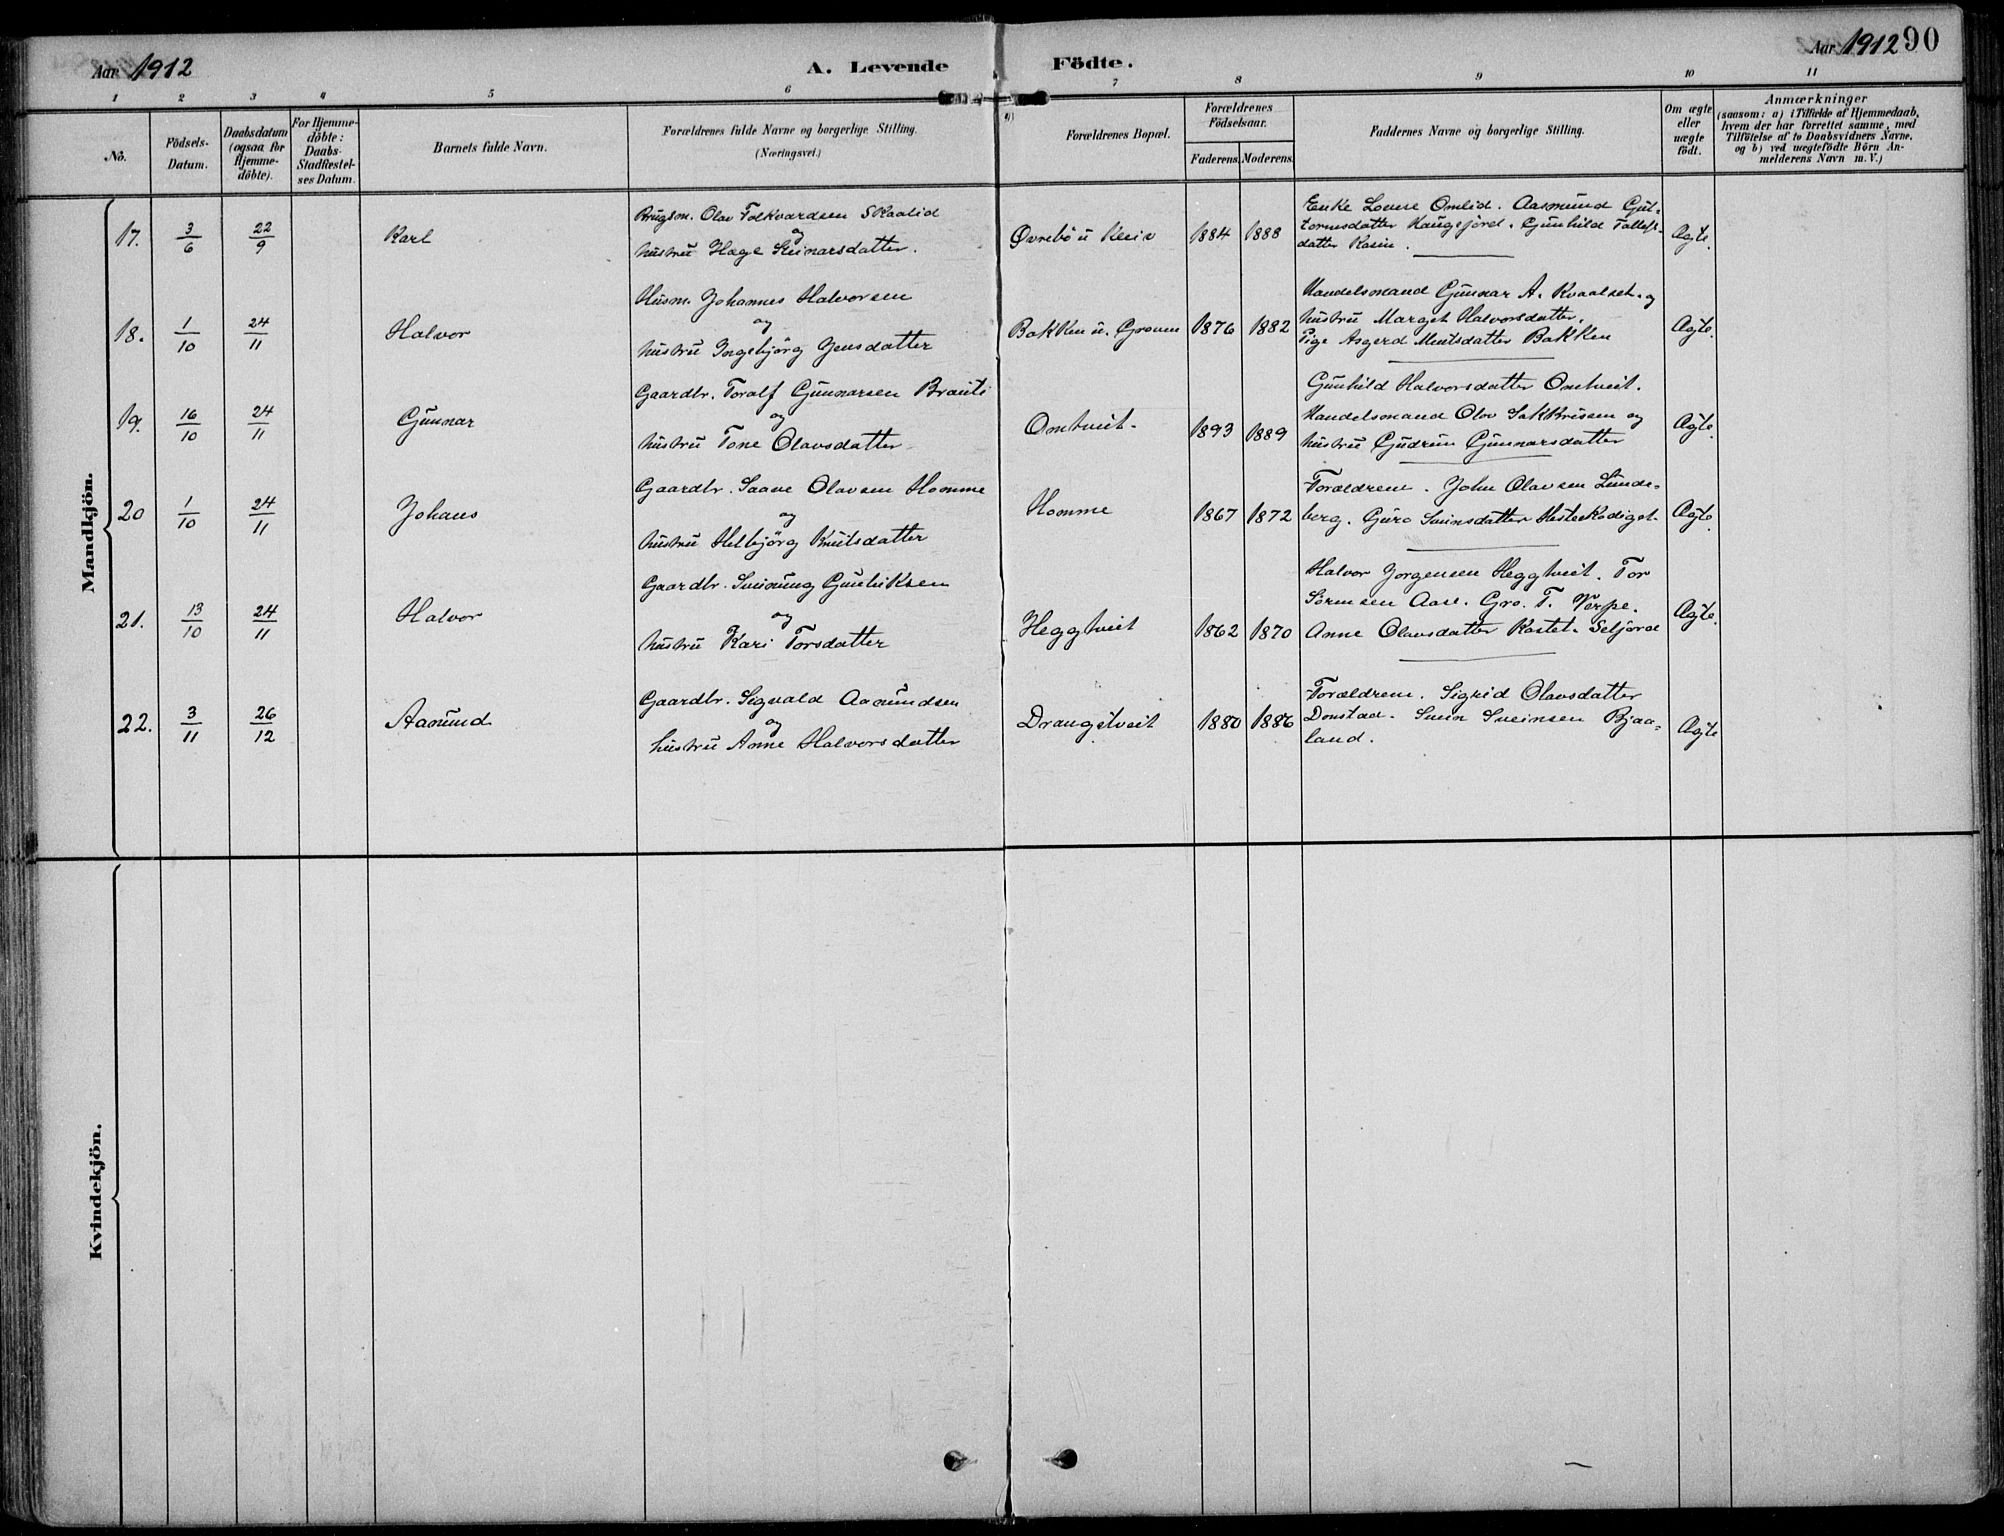 Aar 1912
A. Levende Födte.
Aar 1912 90
1 2 3 4 5 6 7 8 9 10 11
No.
Födsels-
Datum.
Daabsdatum
(ogsaa for
Hjemme-
döbte).
For Hjemme-
döbte:
Daabs-
Stadfæstel-
ses Datum.
Barnets fulde Navn.
Forældrenes fulde Navne og borgerlige Stilling.
(Næringsvei.)
Forældrenes Bopæl.
Forældrenes
Födselsaar.
Faderens. Moderens.
Faddernes Navne og borgerlige Stilling.
Om ægte
eller
uægte
födt.
Anmærkninger
(saasom: a) i Tilfælde af Hjemmedaab,
hvem der har forrettet samme, med
Tilföielse af to Daabsvidners Navne.
og b) ved uægtefödte Börn An-
melderens Navn m. V.)
Mandkjön.
17. 3/6 22/9 Karl
Brugsm. Olav Folkvardsen Skaalid
og
hustru Hæge Steinarsdatter.
Øvrebö u 1884 1888
Enke Lovise Omlid. Aasmund Gut-
tormsdatter Haugsjord. Gunhild Tallefs-
datter Kasin.
Ægte.
18. 1/10 24/11 Halvor
Husm. Johannes Halvorsen
og
hustru Ingebjörg Jensdatter
Bakken u. Groven 1876 1882
Handelsmand Gunnar A. Kvaalset og
hustru Marget Halvorsdatter.
Pige Asgerd Bakken
Ægte.
19. 16/10 24/11 Gunnar
Gaardbr. Toralf Gunnarsen Brauti
og
hustru Tone Olavsdatter
Omtveit. 1893 1889
Gunhild Halvorsdatter Omtveit.
Handelsmand Olov Sakkrissen og
hustru Gudrun Gunnarsdatter
Ægte.
20 1/10 24/11 Johans
Gaardbr. Saave Olavsen Homme
og
hustru Helbjörg Knutsdatter
Homme 1867 1872
Forældrene. John Olavsen Lunde-
berg. Guro Sveinsdatter Hesteskodiget.
Ægte.
21. 13/10 24/11 Halvor
Gaardbr. Sveinung Gunleiksen
og
hustru Kari Torsdatter
Heggtveit 1862 1870
Halvor Jorgensen Heggtveit. Tor
Sörensen Aase. Gro. T. Verpe.
Anne Olavsdatter Kastet. Seljord
Ægte.
22. 3/11 26/12 Aanund
Gaardbr. Sigvald Aanundsen
og
hustru Anne Halvorsdatter
Draugstveit 1880 1886
Forældrene. Sigrid Olavsdatter
Donstad. Svein Sveinsen Bjaa-
land.
Ægte
Kvindekjön.